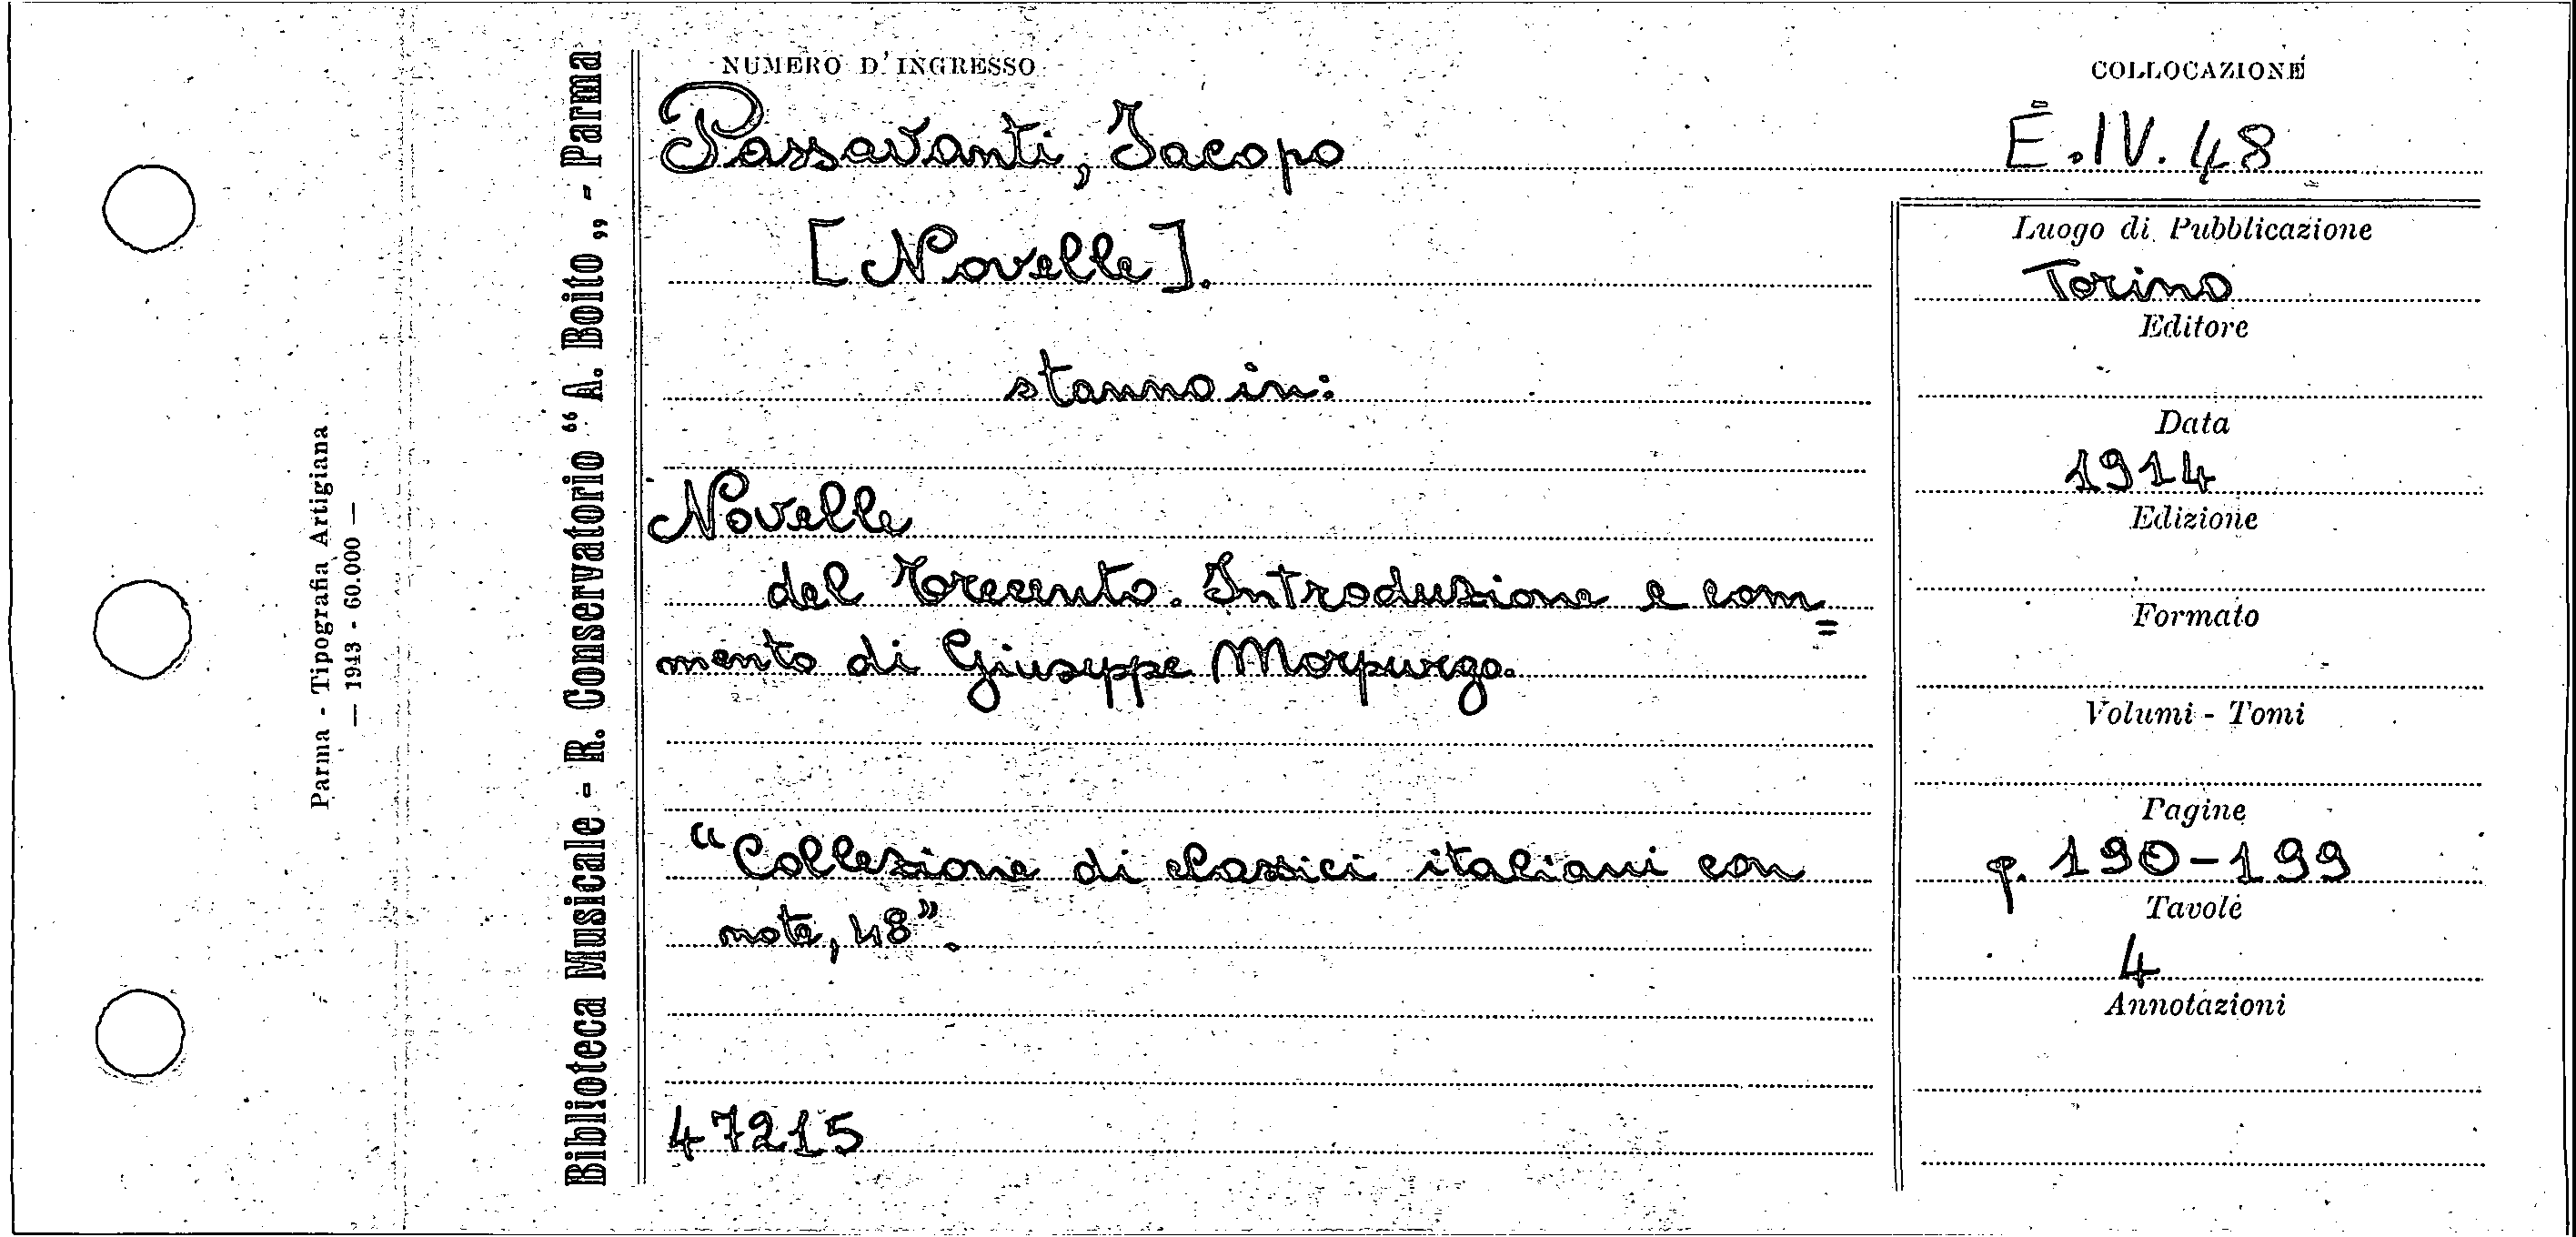 Parma - Tipografia Artigiana
— 1943 - 60.000 —
Biblioteca Musicale - R. Conservatorio “A. Boito„ - Parma
NUMERO D'INGRESSO
COLLOCAZIONE
Passavanti, Jacopo
E.IV.48
[Novelle].
stanno in:
Novelle
del Trecento. Introduzione e com=
mento di Giuseppe Morpurgo.
"Collezione di classici italiani con
note, 48".
47215
Luogo di Pubblicazione
Torino
Editore
Data
1914
Edizione
Formato
Volumi - Tomi
Pagine
p. 190-199
Tavole
4
Annotazioni